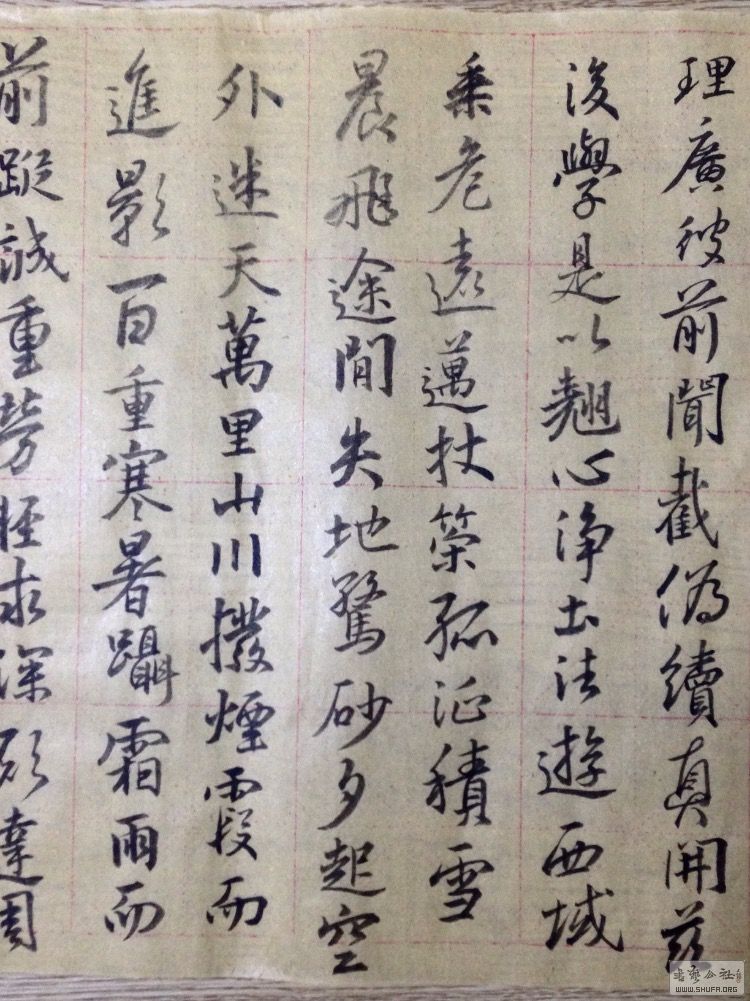 理廣彼前聞截偽續真開茲
後學是以翹心淨土法遊西域
乘危遠邁杖策孤征積雪
晨飛途間失地驚砂夕起空
外迷天萬里山川撥煙霞而
進影百重寒暑躡霜雨而
前蹤誠重勞輕求深願達周
书法公社
WWW.SHUFA.ORG